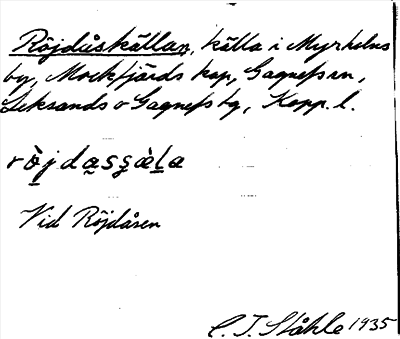 Röjdåskällan, källa i Myrholns
by, Mockfjärds kap, Gagnefs sn,
Leksands o Gagnefs tg, Kopp. l.
rò̱jda̱sʒ̀æ̀ḻa
Vid Röjdåsen
C. I. Ståhle 1935